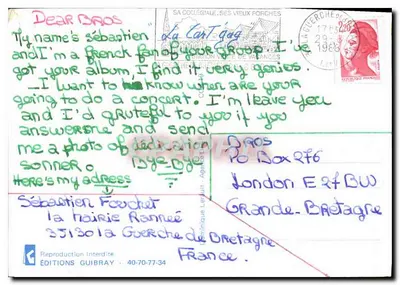 SA COLLEGIALE, SES VIEUX PORCHES
La Cart'gag
DEAR BROS
My name's Sébastien
and I'm a french fan of your group. I've
got your album, I find it very genies.
I want to know when are your
going to do a concert. I'm leave you
and I'd grateful to you if you
answerme and send
me a photo of dedication
sonner.
Bye-Bye
Here's my adress
Sébastien Fouchet
la Mairie Rannée
35130 la Guerche de Bretagne
France.
BROS
PO BOX 276
London E27BW
GRANDE-Bretagne
Reproduction interdite
EDITIONS GUIBRAY - 40-70-77-34